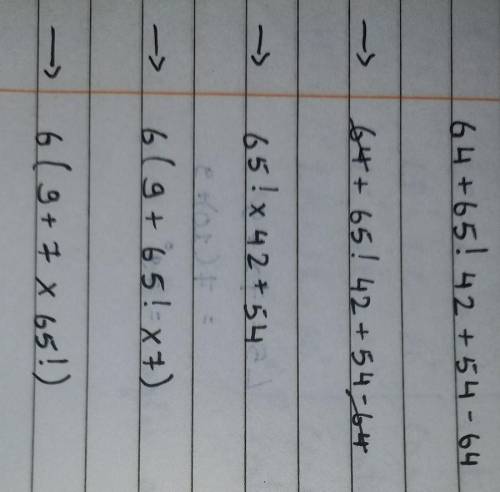 64 + 65! 42 + 54 - 64
→ 64 + 65! 42 + 54 - 64
→ 65! x 42 + 54
→ 6 ( 9 + 65! x 7 )
→ 6 ( 9 + 7 x 65! )